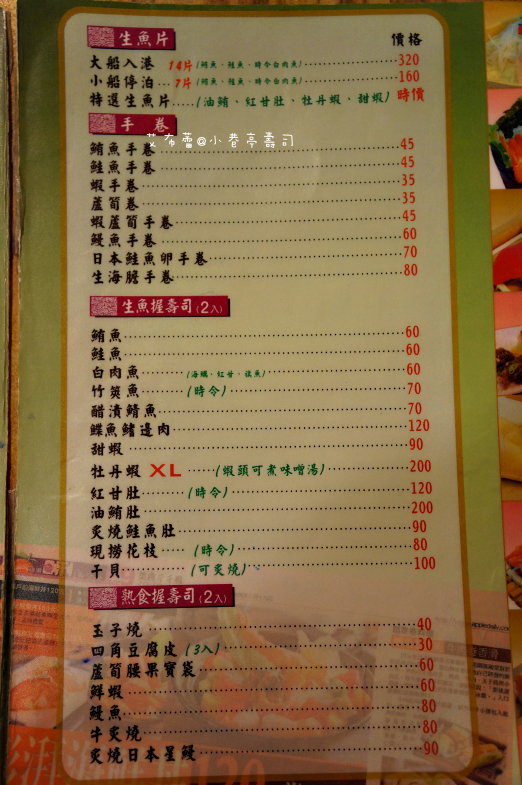 生魚片 價格
大船入港 14片(鮪魚、鮭魚、時令白肉魚) 320
小船停泊 7片(鮪魚、鮭魚、時令白肉魚) 160
特選生魚片 (油鮪、紅甘肚、牡丹蝦、甜蝦) 時價
手卷
艾布蕾@小巷亭壽司
鮪魚手卷 45
鮭魚手卷 45
蝦手卷 35
蘆筍卷 35
蝦蘆筍手卷 45
鰻魚手卷 60
日本鮭魚卵手卷 70
生海膽手卷 80
生魚握壽司(2入)
鮪魚 60
鮭魚 60
白肉魚 (海鱺、紅甘、旗魚) 60
竹筴魚 (時令) 70
醋漬鯖魚 70
鰈魚鰭邊肉 120
甜蝦 90
牡丹蝦 XL (蝦頭可煮味噌湯) 200
紅甘肚 (時令) 120
油鮪肚 200
炙燒鮭魚肚 90
現撈花枝 (時令) 80
干貝 (可炙燒) 100
熟食握壽司(2入)
玉子燒 40
四角豆腐皮(3入) 30
蘆筍腰果寶袋 60
鮮蝦 60
鰻魚 80
牛炙燒 80
炙燒日本星鰻 90